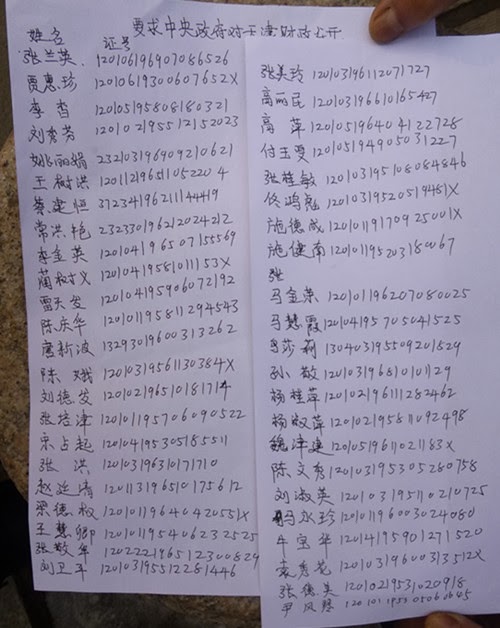 要求中央政府对天津财政公开
姓名 证号
张兰英 120106196907086526
贾惠珍 12010619300607652X
李香 120105195808180321
刘秀芳 120102195512152023
姚丽娟 232103196909210621
王树洪 120112196511052204
蔡建恒 37234196211144419
常洪艳 232330196212024212
李金英 120104196507155569
蔺树义 12010419581011153X
雷天发 120104195906072192
陈庆华 120101195811294543
唐新波 132930196003313262
陈娥 12010319561130384X
刘德发 120102196510181714
张培津 120101195706090522
宋占起 120104195305185511
张洪 120103196310171710
赵延清 120113196510175612
梁德权 12010119640420551X
王慧卿 120101195406232525
张敬年 120222196512300829
刘卫平 120103195512281446
张美玲 120103196112071727
高丽民 120103196610165427
高萍 120105196404122728
付玉受 120105194905031227
张桂敏 120103195108084846
佟鸿彪 12010319520519481X
施德成 12010119170925001X
施健南 120101195203180067
张
马金荣 120101196207080025
马慧霞 120104195705041525
马莎莉 130403195509201829
孙敬 120103196810101129
杨桂萍 120102196111282462
杨淑萍 120102195811092498
魏津建 12010519611021183X
陈文秀 120103195305280758
刘淑英 120103195110210725
冯永珍 120101196003024080
牛宝华 12014195901271520
袁秀花 12010319600313512X
张德美 12010219531020918
尹凤